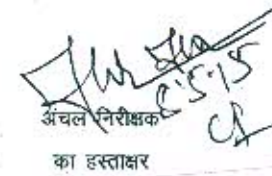 8.5.15
अंचल निरीक्षक
CI
का हस्ताक्षर